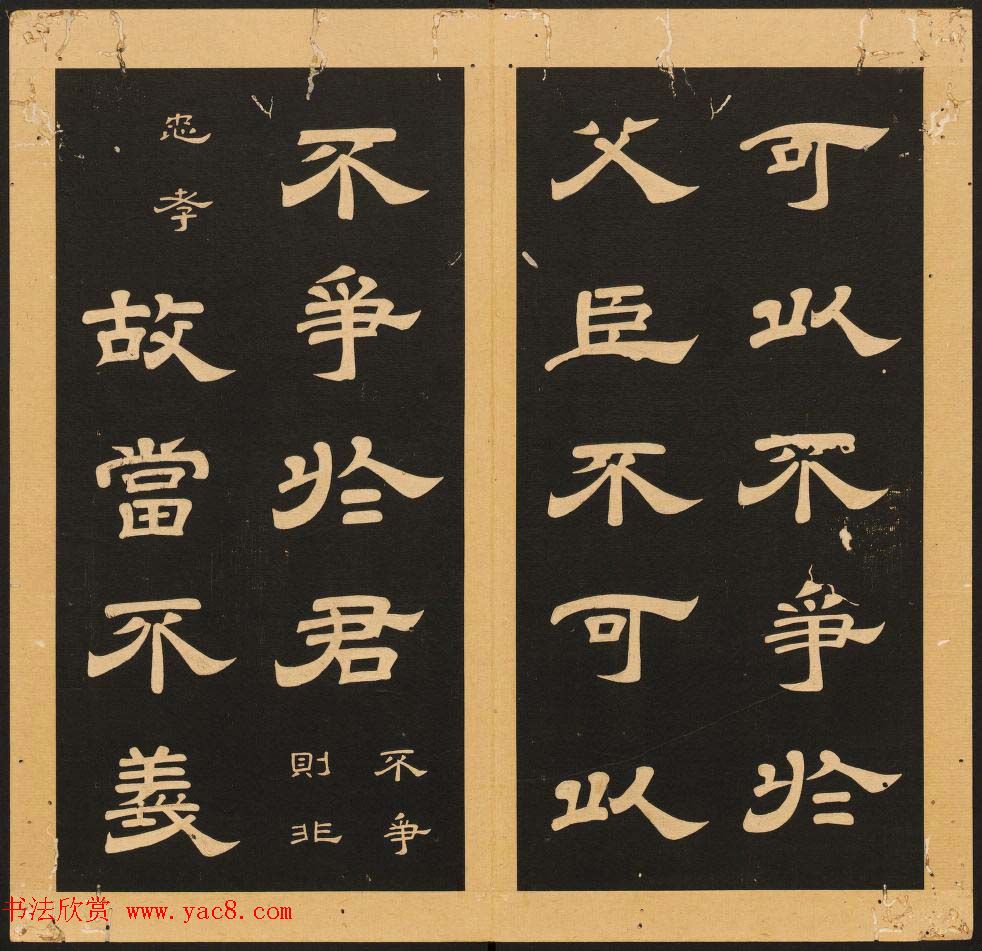 可以不爭於
父臣不可以
不爭於君不爭則非
忠孝故當不義
书法欣赏 www.yac8.com